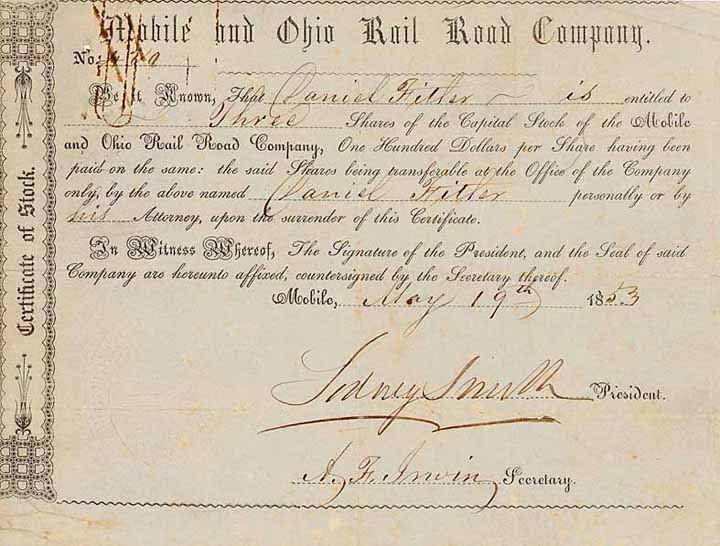 Mobile and Ohio Rail Road Company.
No.
Be it Known, That Daniel Fitler is entitled to
Three Shares of the Capital Stock of the Mobile
and Ohio Rail Road Company, One Hundred Dollars per Share having been
paid on the same: the said Shares being transferable at the Office of the Company
only, by the above named Daniel Fitler personally or by
his Attorney, upon the surrender of this Certificate.
In Witness Whereof, The Signature of the President, and the Seal of said
Company are hereunto affixed, countersigned by the Secretary thereof.
Mobile, May 19th 1853
Sidney Smith President.
A. F. Irwin, Secretary.
Certificate of Stock.